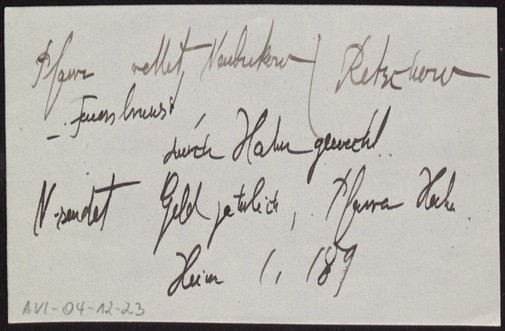 Pfarre rettet, Neubukow / Retschow
- Feuersbrunst
durch Hahn geweckt.
N-sendet Geld jährlich, Pfarre Hahn
Heim 1, 189
AVI-04-12-23